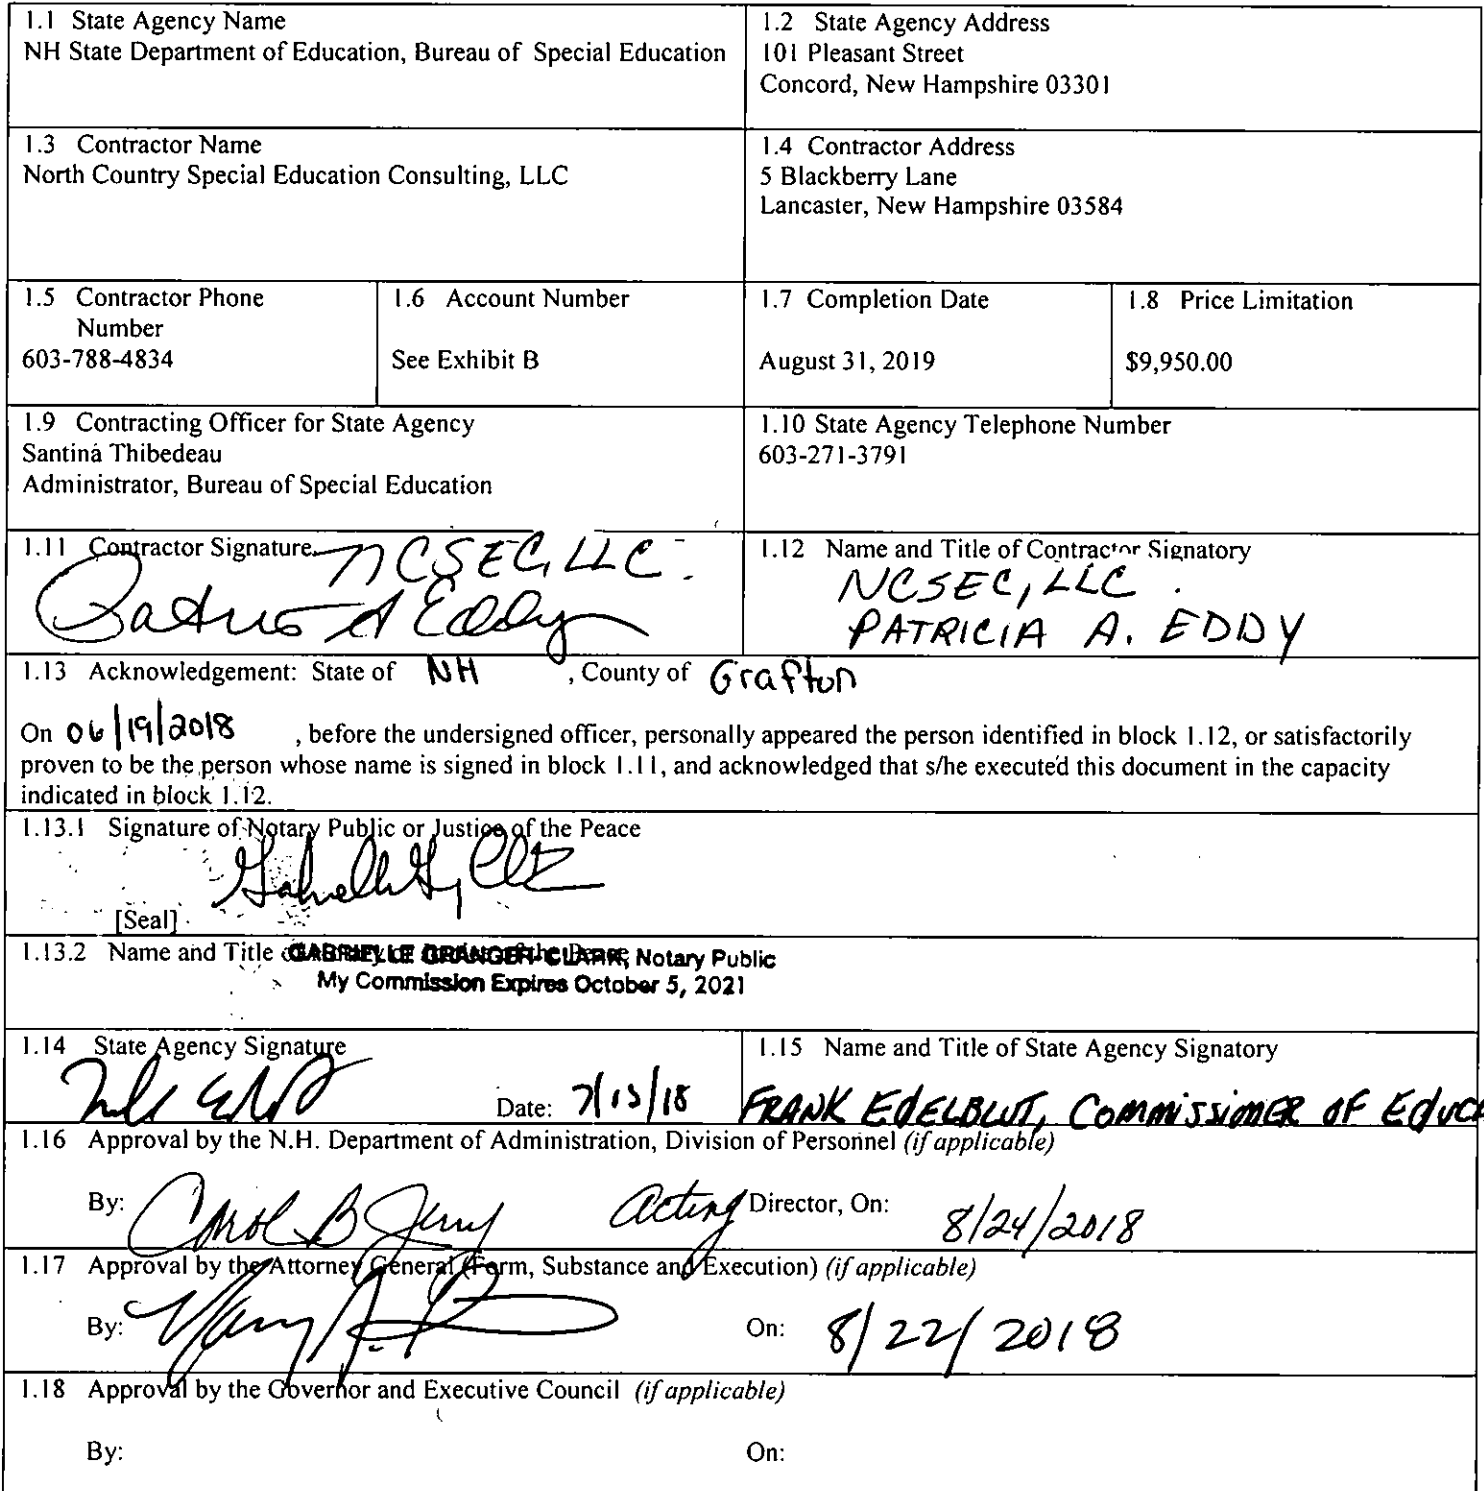 1.1 State Agency Name
NH State Department of Education, Bureau of Special Education
1.2 State Agency Address
101 Pleasant Street
Concord, New Hampshire 03301
1.3 Contractor Name
North Country Special Education Consulting, LLC
1.4 Contractor Address
5 Blackberry Lane
Lancaster, New Hampshire 03584
1.5 Contractor Phone
Number
603-788-4834
1.6 Account Number
See Exhibit B
1.7 Completion Date
August 31, 2019
1.8 Price Limitation
$9,950.00
1.9 Contracting Officer for State Agency
Santina Thibedeau
Administrator, Bureau of Special Education
1.10 State Agency Telephone Number
603-271-3791
1.11 Contractor Signature
NCSEC, LLC.
Patricia A Eddy
1.12 Name and Title of Contractor Signatory
NCSEC, LLC.
PATRICIA A. EDDY
1.13 Acknowledgement: State of NH , County of Grafton
On 06/19/2018 , before the undersigned officer, personally appeared the person identified in block 1.12, or satisfactorily
proven to be the person whose name is signed in block 1.11, and acknowledged that s/he executed this document in the capacity
indicated in block 1.12.
1.13.1 Signature of Notary Public or Justice of the Peace
[Seal]
1.13.2 Name and Title
GABRIELLE GRANGER-CLARK, Notary Public
My Commission Expires October 5, 2021
1.14 State Agency Signature
Date: 7/13/18
1.15 Name and Title of State Agency Signatory
FRANK EDELBLUT, COMMISSIONER OF EDUCA
1.16 Approval by the N.H. Department of Administration, Division of Personnel (if applicable)
By: Carol B Jerry Acting Director, On: 8/24/2018
1.17 Approval by the Attorney General (Form, Substance and Execution) (if applicable)
By: On: 8/22/2018
1.18 Approval by the Governor and Executive Council (if applicable)
By: On: